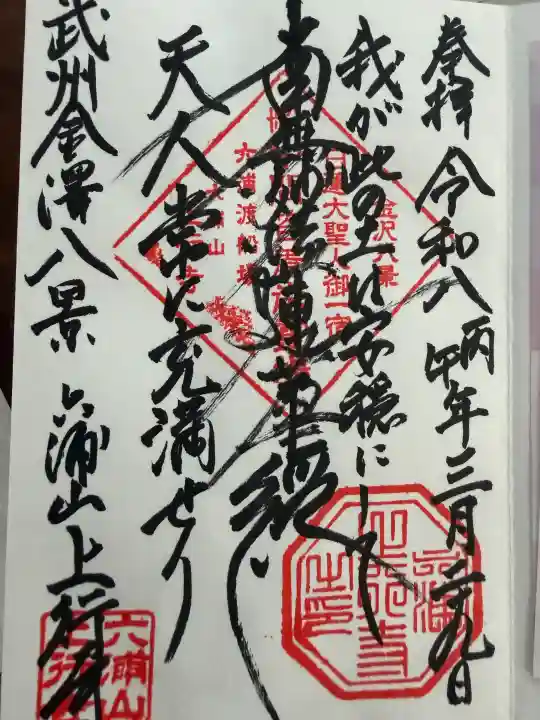 奉拝 令和八丙午年三月二十九日
我が此の土は安穏にして
南無妙法蓮華経
天人常に充満せり
武州金澤八景 六浦山上行寺
金沢八景
日蓮大聖人御一宿
六浦渡船場
六浦山
上行寺
六浦山